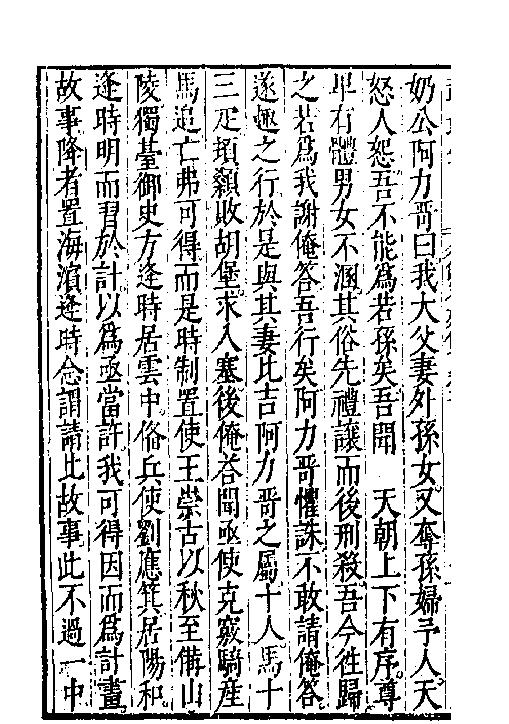 奶公阿力哥曰我大父妻外孫女又奪孫婦予人天
怒人怨吾不能爲若孫矣吾聞　天朝上下有序尊
卑有體男女不溷其俗先禮讓而後刑殺吾今徃歸
之若爲我謝俺答吾行矣阿力哥懼誅不敢請俺答
遂趣之行於是與其妻比吉阿力哥之屬十人馬十
三疋頓顙敗胡堡求入塞後俺荅聞亟使克竅騎產
馬追亡弗可得而是時制置使王崇古以秋至備山
陵獨臺御史方逢時居雲中俗兵使劉應箕居陽和
逢時明而習於計以爲亟當許我可得因而爲計畫
故事降者置海濵逢時念謂請比故事此不過一中